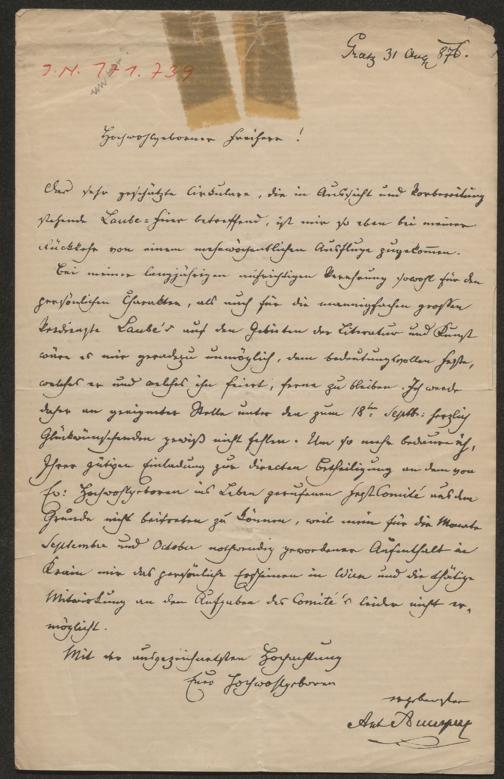 Gratz 31 Aug 876.
I.N. 171.739
Hochwohlgeborner Freiherr!
Das sehr geschätzte Circulare, die in Aussicht und Vorbereitung
stehende Laube=Feier betreffend, ist mir so eben bei meiner
Rückkehr von einem mehrwöchentlichen Ausfluge zugekommen.
Bei meiner langjährigen aufrichtigen Verehrung sowohl für den
persönlichen Charakter, als auch für die mannigfachen großen
Verdienste Laube's auf den Gebieten der Literatur und Kunst
wäre es mir geradezu unmöglich, dem bedeutungsvollen Feste,
welches er und welches ihn feiert, ferne zu bleiben. Ich werde
daher an geeigneter Stelle unter den zum 18ten Septb: herzlich
Glückwünschenden gewiß nicht fehlen. Um so mehr bedaure ich,
Ihrer gütigen Einladung zur directen Betheiligung an dem von
Ew: Hochwohlgeboren ins Leben gerufenen Festcomité aus dem
Grunde nicht beitreten zu können, weil mein für die Monate
September und October nothwendig gewordener Aufenthalt in
Krain mir das persönliche Erscheinen in Wien und die thätige
Mitwirkung an den Aufgaben des Comité's leider nicht er-
möglicht.
Mit der ausgezeichnetsten Hochachtung
Euer Hochwohlgeboren
ergebenster
Ant Auersperg